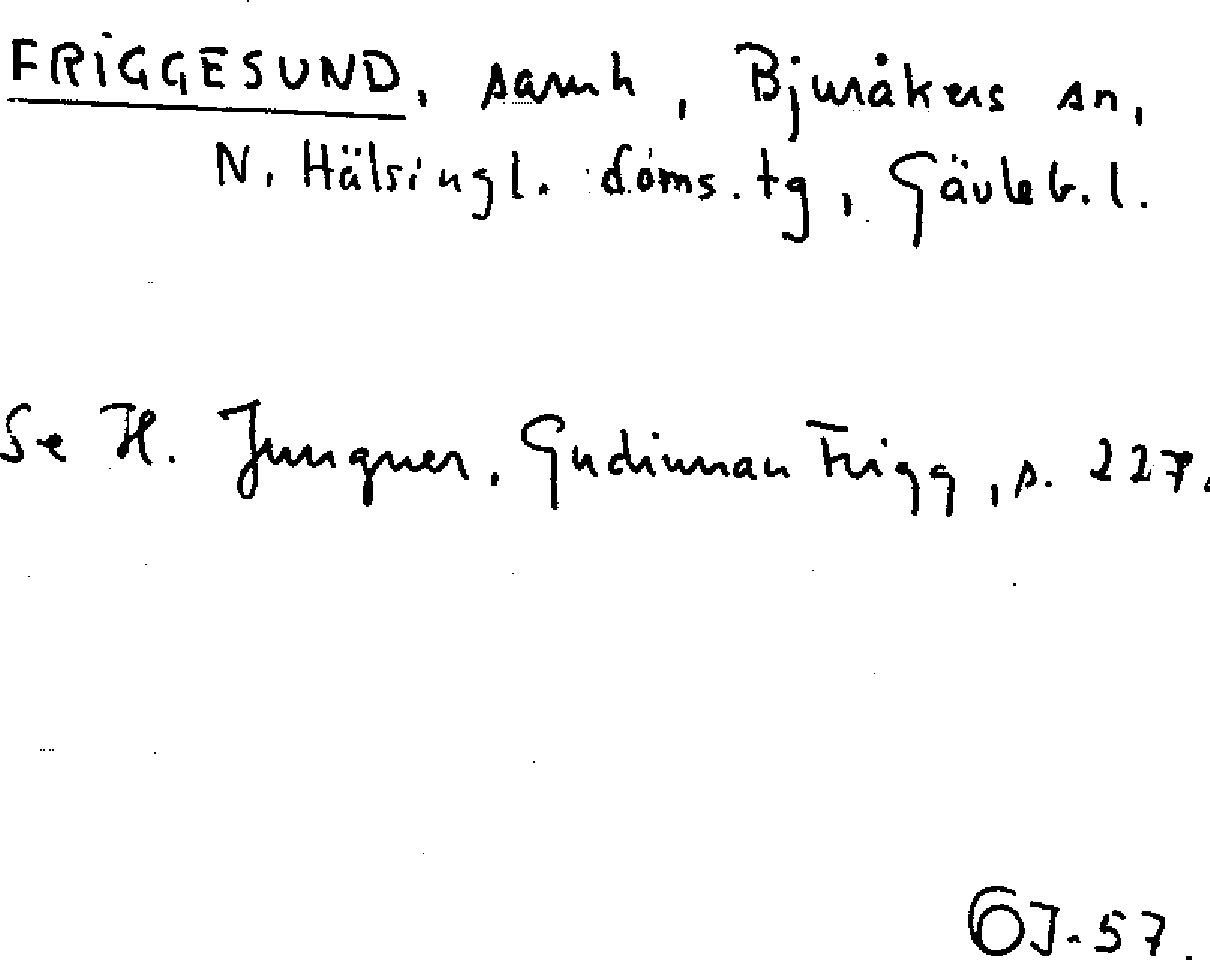 FRIGGESUND, samh, Bjuråkers sn,
N. Hälsingl. doms. tg, Gävleb. l.
Se H. Jungner, Gudinnan Frigg, s. 227.
GJ-57.